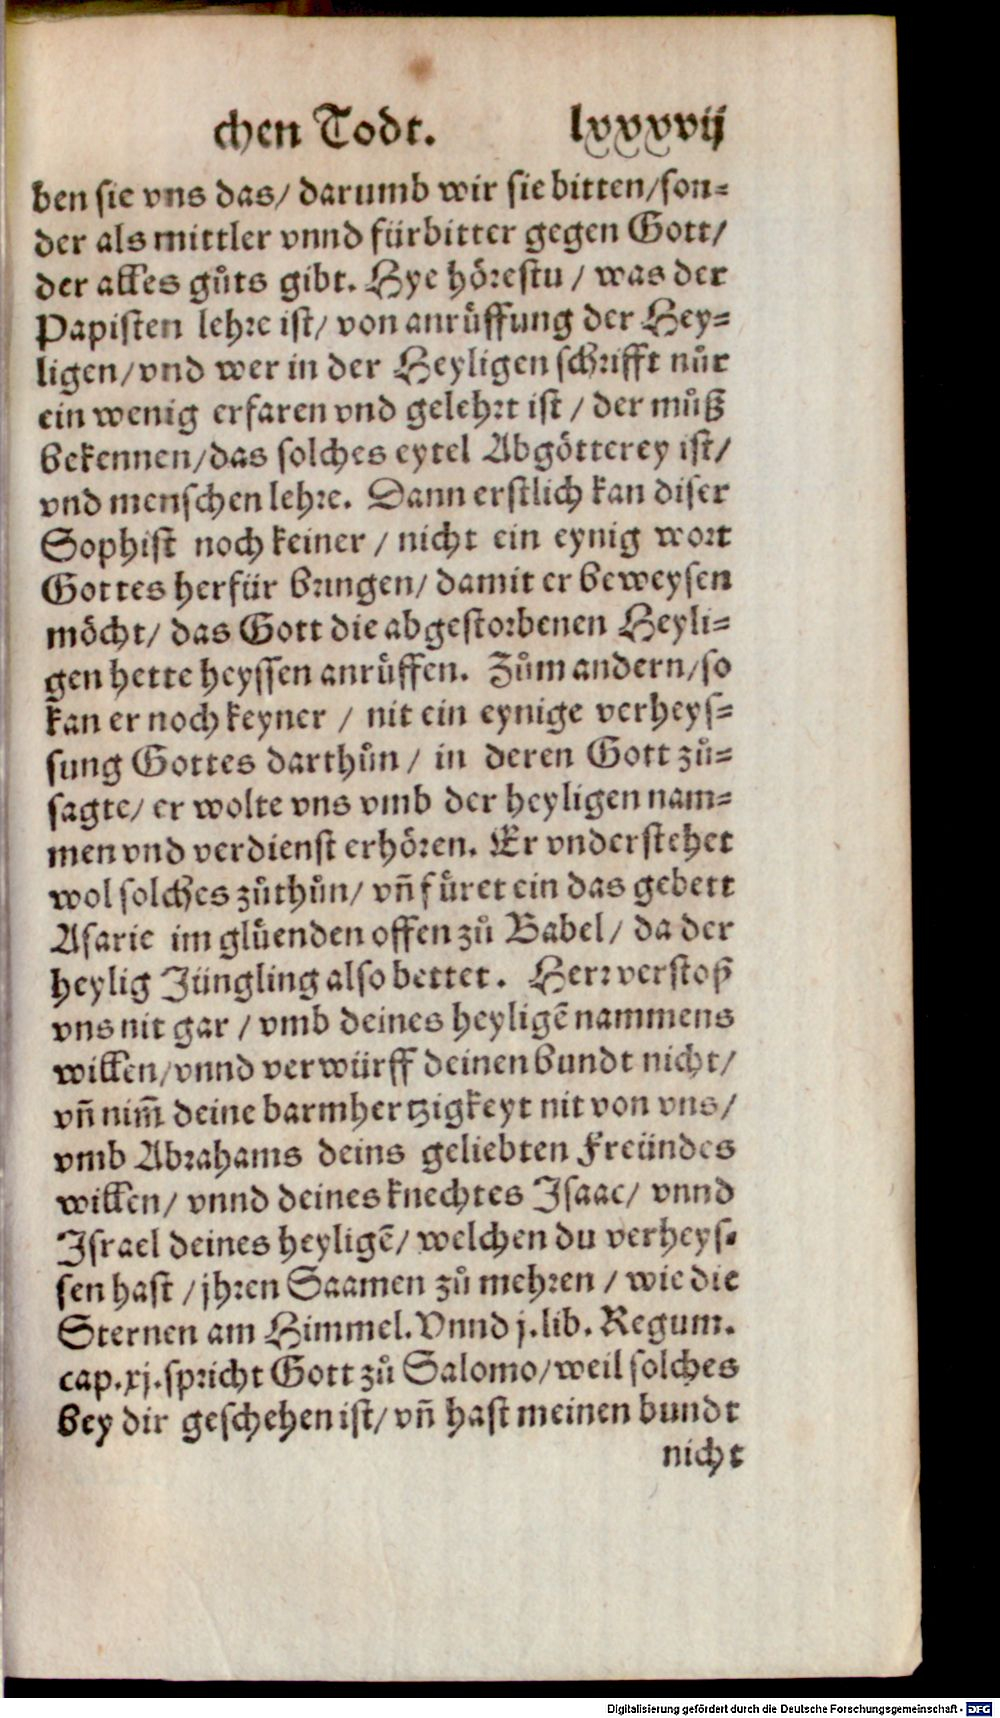 chen Todt. lxxxvij
ben sie vns das/ darumb wir sie bitten/son-
der als mittler vnnd fürbitter gegen Gott/
der alles gůts gibt. Hye hörestu / was der
Papisten lehre ist/ von anrůffung der Hey-
ligen/vnd wer in der Heyligen schrifft nůr
ein wenig erfaren vnd gelehrt ist / der můß
bekennen/das solches eytel Abgötterey ist/
vnd menschen lehre. Dann erstlich kan diser
Sophist noch keiner / nicht ein eynig wort
Gottes herfür bringen/ damit er beweysen
möcht/ das Gott die abgestorbenen Heyli-
gen hette heyssen anrůffen. Zům andern/so
kan er noch keyner / nit ein eynige verheys-
sung Gottes darthůn / in deren Gott zů-
sagte/ er wolte vns vmb der heyligen nam-
men vnd verdienst erhören. Er vnderstehet
wol solches zůthůn/ vñ fůret ein das gebett
Asarie im glůenden offen zů Babel/ da der
heylig Jüngling also bettet. Herr verstoß
vns nit gar / vmb deines heyligẽ nammens
willen/vnnd verwürff deinen bundt nicht/
vñ nim̃ deine barmhertzigkeyt nit von vns/
vmb Abrahams deins geliebten Freündes
willen/ vnnd deines knechtes Isaac/ vnnd
Israel deines heyligẽ/ welchen du verheys-
sen hast / jhren Saamen zů mehren / wie die
Sternen am Himmel. Vnnd j. lib. Regum.
cap. xj. spricht Gott zů Salomo/weil solches
bey dir geschehen ist/ vñ hast meinen bundt
nicht
Digitalisierung gefördert durch die Deutsche Forschungsgemeinschaft - DFG